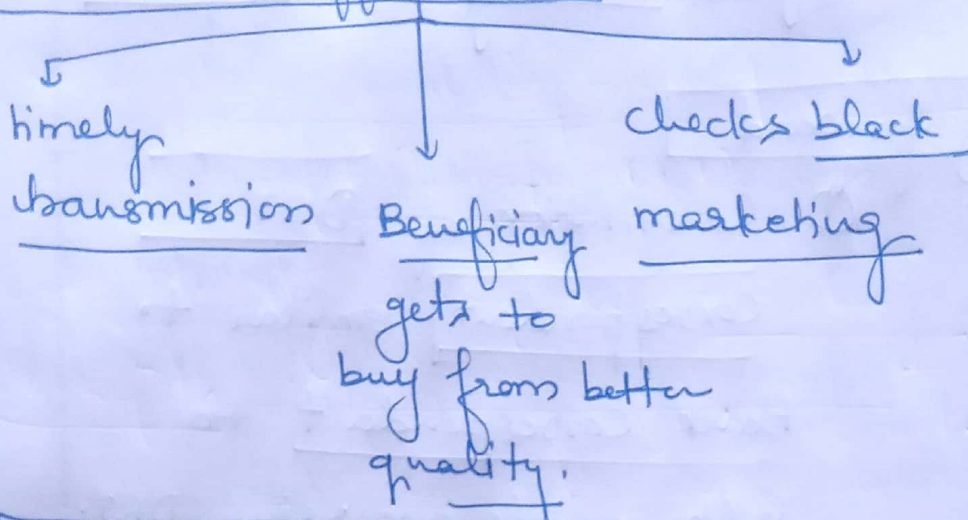 timely
transmission
Beneficiary
gets to
buy from better
quality.
checks black
marketing